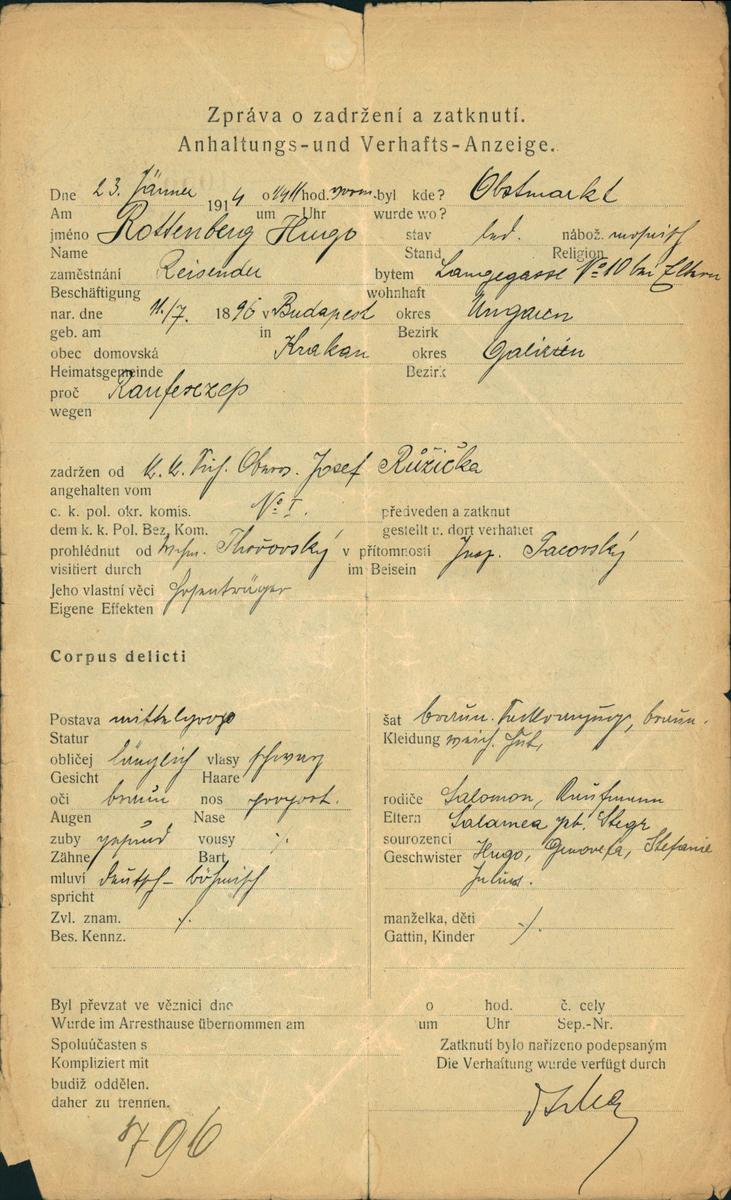 Zpráva o zadržení a zatknutí.
Anhaltungs-und Verhafts-Anzeige.
Dne 23. Jänner 1914 o hod. vorm. byl kde? Obstmarkt
Am um Uhr wurde wo?
jméno Rottenberg Hugo stav led. nábož. mosaisch
Name Stand Religion
zaměstnání Reisender bytem Langegasse No 10 bei Eltern
Beschäftigung wohnhaft
nar. dne 11./7. 1896 v Budapest okres Ungarn
geb. am in Bezirk
obec domovská Krakau okres Galizien
Heimatsgemeinde Bezirk
proč Raufexzeß
wegen
zadržen od k. k. Josef Růžička
angehalten vom
c. k. pol. okr. komis. No I. předveden a zatknut
dem k. k. Pol. Bez. Kom. gestellt u. dort verhaftet
prohlédnut od v přítomnosti Insp.
visitiert durch im Beisein
Jeho vlastní věci Hosenträger
Eigene Effekten
Corpus delicti
Postava mittelgroß šat braun. braun.
Statur Kleidung weich. Hut,
obličej länglich vlasy schwarz
Gesicht Haare
oči braun nos proport. rodiče Salomon, Kaufmann
Augen Nase Eltern Salamea geb. Stegr
zuby gesund vousy ·/. sourozenci
Zähne Bart Geschwister Hugo, Genovefa, Stefanie
mluví deutsch – böhmisch Julius.
spricht
Zvl. znam. ·/. manželka, děti ·/.
Bes. Kennz. Gattin, Kinder
Byl převzat ve věznici dne o hod. č. cely
Wurde im Arresthause übernommen am um Uhr Sep.-Nr.
Spoluúčasten s Zatknutí bylo nařízeno podepsaným
Kompliziert mit Die Verhaftung wurde verfügt durch
budiž oddělen.
daher zu trennen.
796